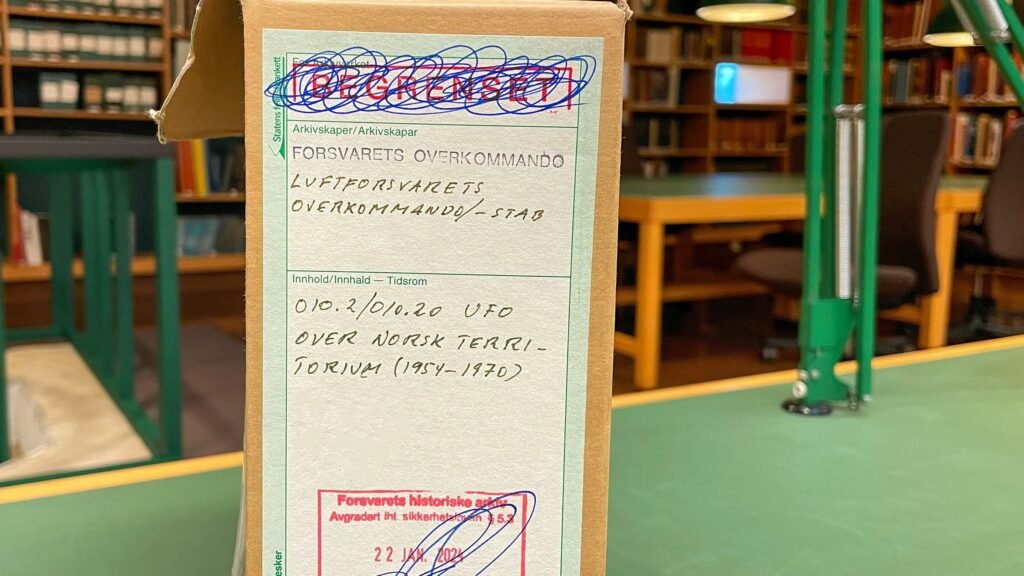 BEGRENSET
Arkivskaper/Arkivskapar
FORSVARETS OVERKOMMANDO
LUFTFORSVARETS
OVERKOMMANDO/-STAB
Innhold/Innhald — Tidsrom
010.2/010.20 UFO
OVER NORSK TERRI-
TORIUM (1954-1970)
Forsvarets historiske arkiv
Avgradert iht. sikkerhetsloven § 5.3
22 JAN. 2024
Statens
esker